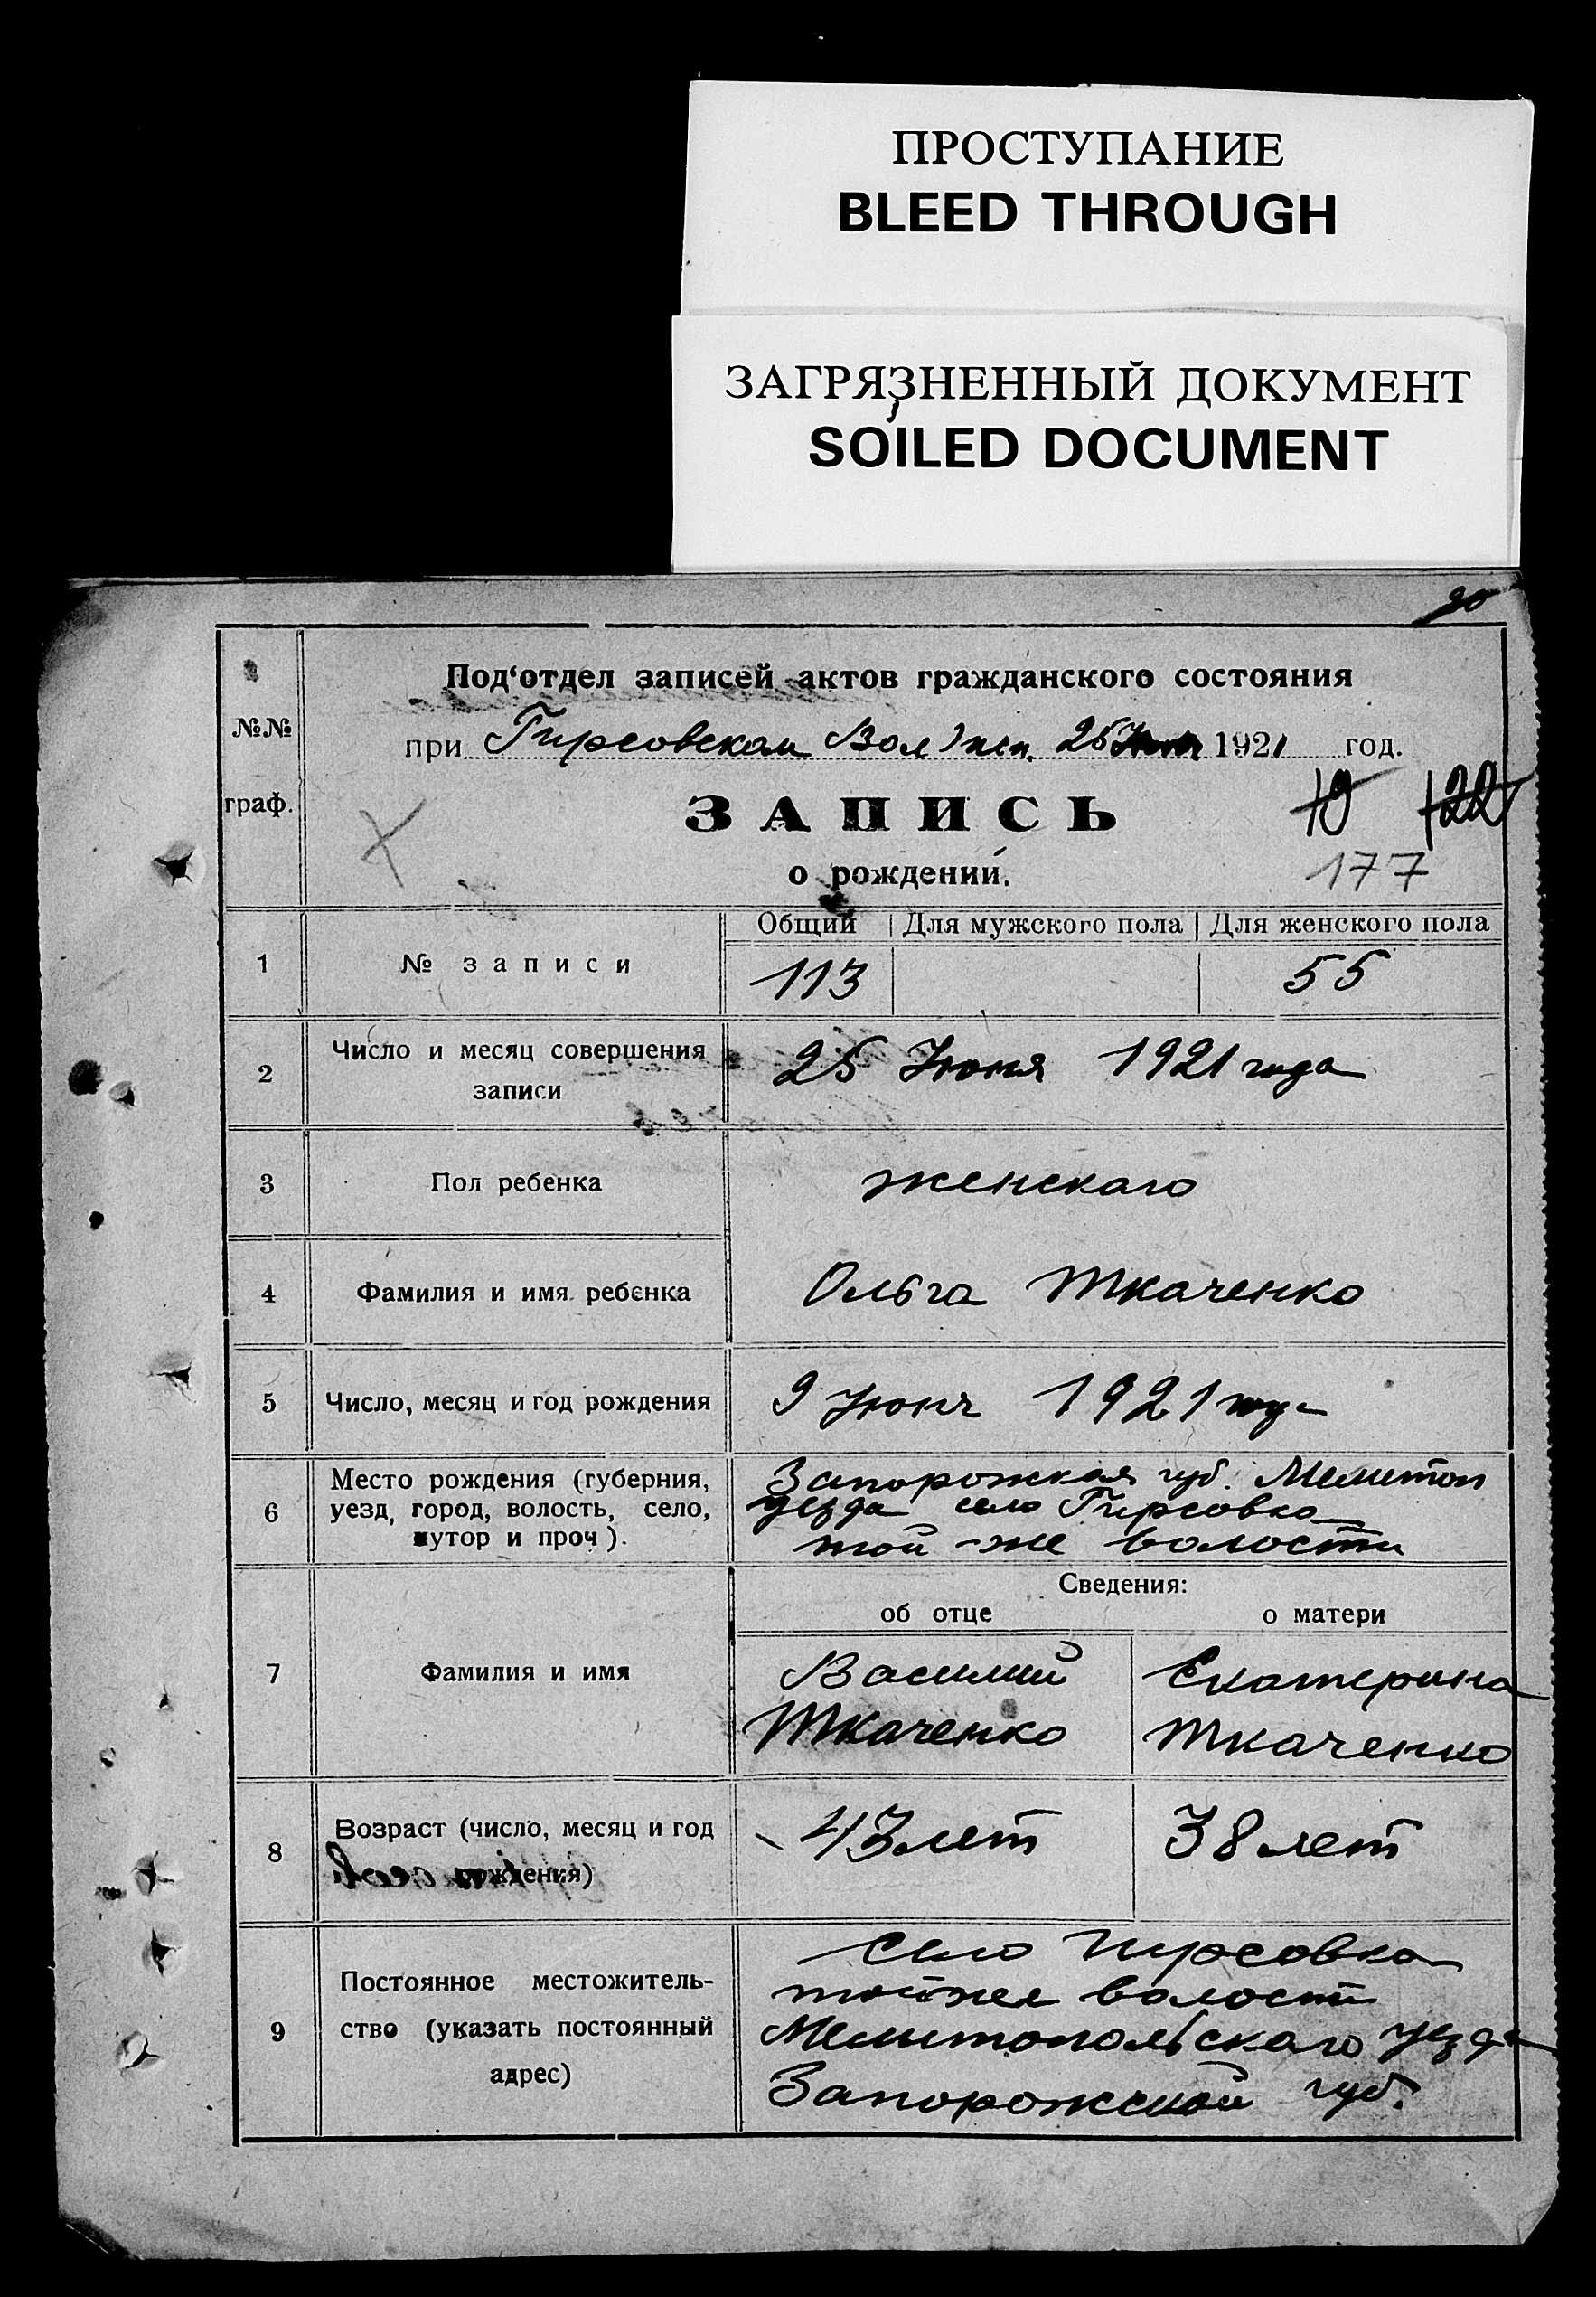 ПРОСТУПАНИЕ
BLEED THROUGH
ЗАГРЯЗНЕННЫЙ ДОКУМЕНТ
SOILED DOCUMENT
90
№№
граф.
Под‘отдел записей актов гражданского состояния
при Гирсовском Вол 25 Июня 1921 год.
ЗАПИСЬ
о рождении.
177
Общий Для мужского пола Для женского пола
1 № записи 113 55
2 Число и месяц совершения
записи
25 Июня 1921 года
3 Пол ребенка женскаго
4 Фамилия и имя ребенка Ольга Ткаченко
5 Число, месяц и год рождения 9 Июня 1921 года
6 Место рождения (губерния,
уезд, город, волость, село,
хутор и проч).
Запорожская губ. Мелитоп
уезда село Гирсовка
той-же волости
Сведения:
об отце о матери
7 Фамилия и имя
Василий Екатерина
Ткаченко Ткаченко
8 Возраст (число, месяц и год
рождения)
43 лет 38 лет
9 Постоянное местожитель-
ство (указать постоянный
адрес)
село Гирсовка
тойже волости
Мелитопольскаго уезда
Запорожской губ.